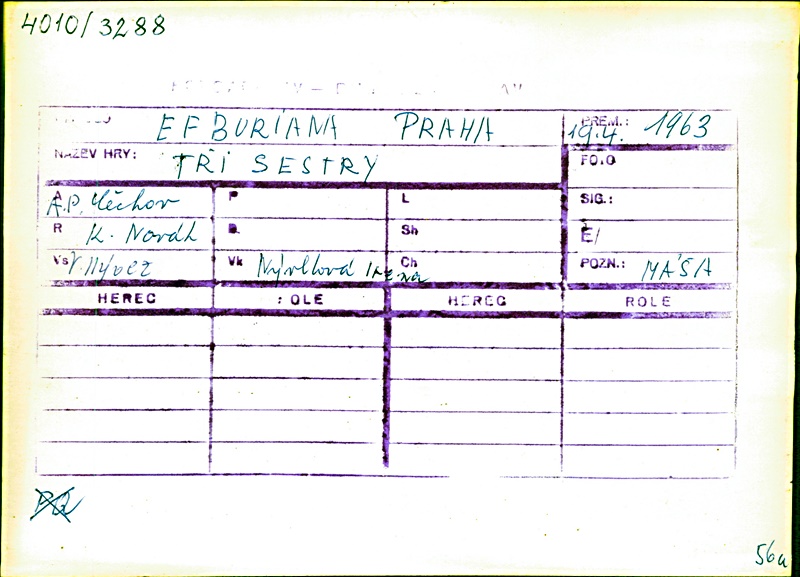 4010/3288
EFBURIANA PRAHA PREM.: 19.4. 1963
NÁZEV HRY: TŘI SESTRY FOTO
A A.P. Čechov P L SIG.:
R K. Novák Sh
Vs V. Nývlt Vk Nývltová Irena Ch POZN.: MÁŠA
HEREC ROLE HEREC ROLE
56a